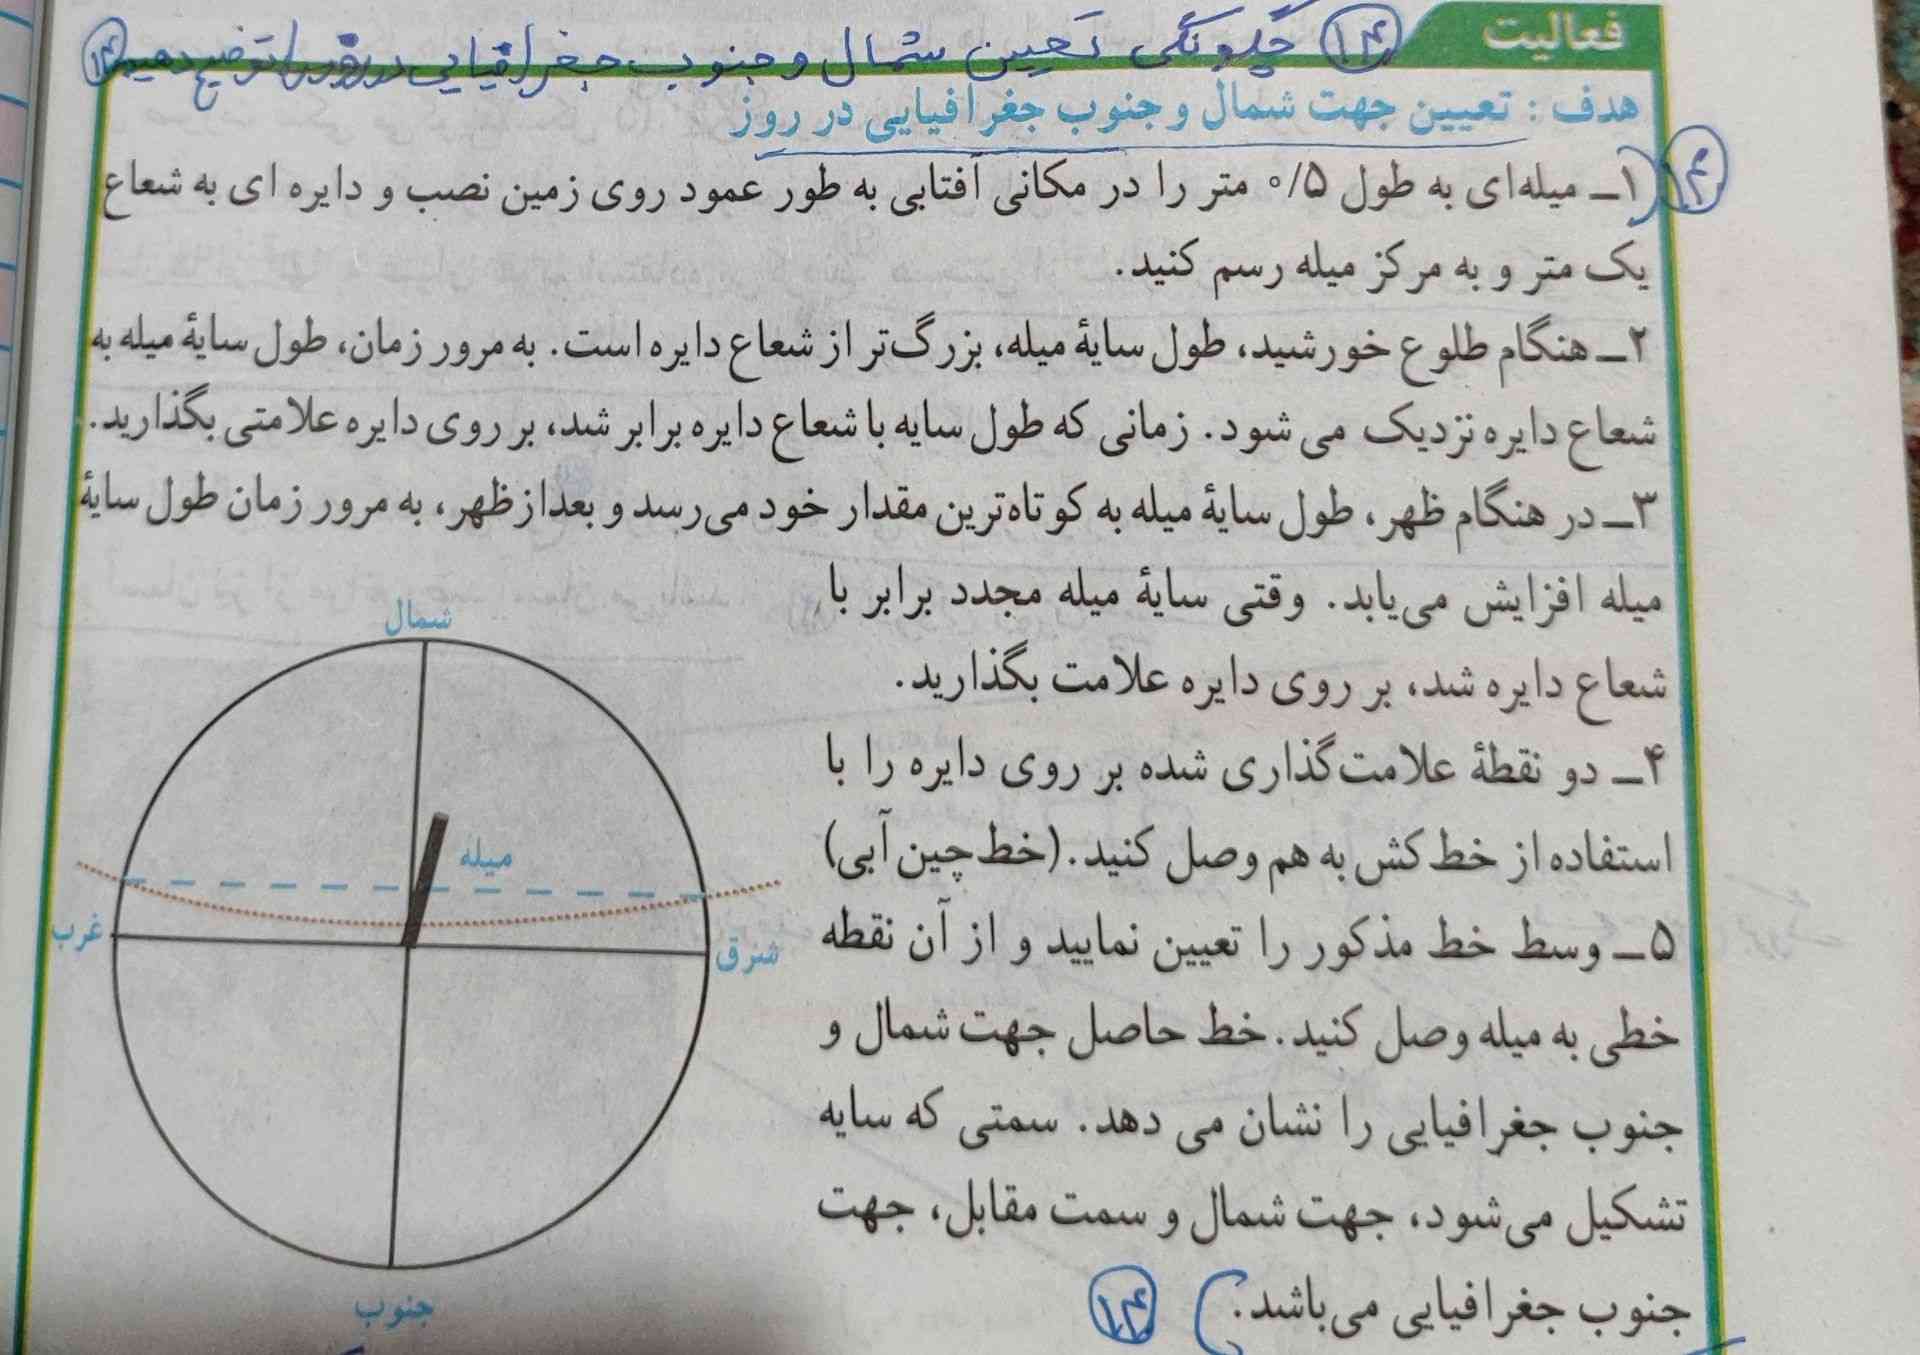 فعالیت
۱۴ چگونگی تعیین شمال و جنوب جغرافیایی در روز را توضیح دهید ۱۴
هدف : تعیین جهت شمال و جنوب جغرافیایی در روز
۱۴
۱ــ میله‌ای به طول ۰/۵ متر را در مکانی آفتابی به طور عمود روی زمین نصب و دایره ای به شعاع
یک متر و به مرکز میله رسم کنید.
۲ــ هنگام طلوع خورشید، طول سایهٔ میله، بزرگ‌تر از شعاع دایره است. به مرور زمان، طول سایهٔ میله به
شعاع دایره نزدیک می شود. زمانی که طول سایه با شعاع دایره برابر شد، بر روی دایره علامتی بگذارید.
۳ــ در هنگام ظهر، طول سایهٔ میله به کوتاه‌ترین مقدار خود می‌رسد و بعدازظهر، به مرور زمان طول سایهٔ
میله افزایش می‌یابد. وقتی سایهٔ میله مجدد برابر با
شعاع دایره شد، بر روی دایره علامت بگذارید.
۴ــ دو نقطهٔ علامت‌گذاری شده بر روی دایره را با
استفاده از خط‌کش به هم وصل کنید. (خط‌چین آبی)
۵ــ وسط خط مذکور را تعیین نمایید و از آن نقطه
خطی به میله وصل کنید. خط حاصل جهت شمال و
جنوب جغرافیایی را نشان می دهد. سمتی که سایه
تشکیل می‌شود، جهت شمال و سمت مقابل، جهت
جنوب جغرافیایی می‌باشد.
۱۴
شمال
میله
غرب
شرق
جنوب